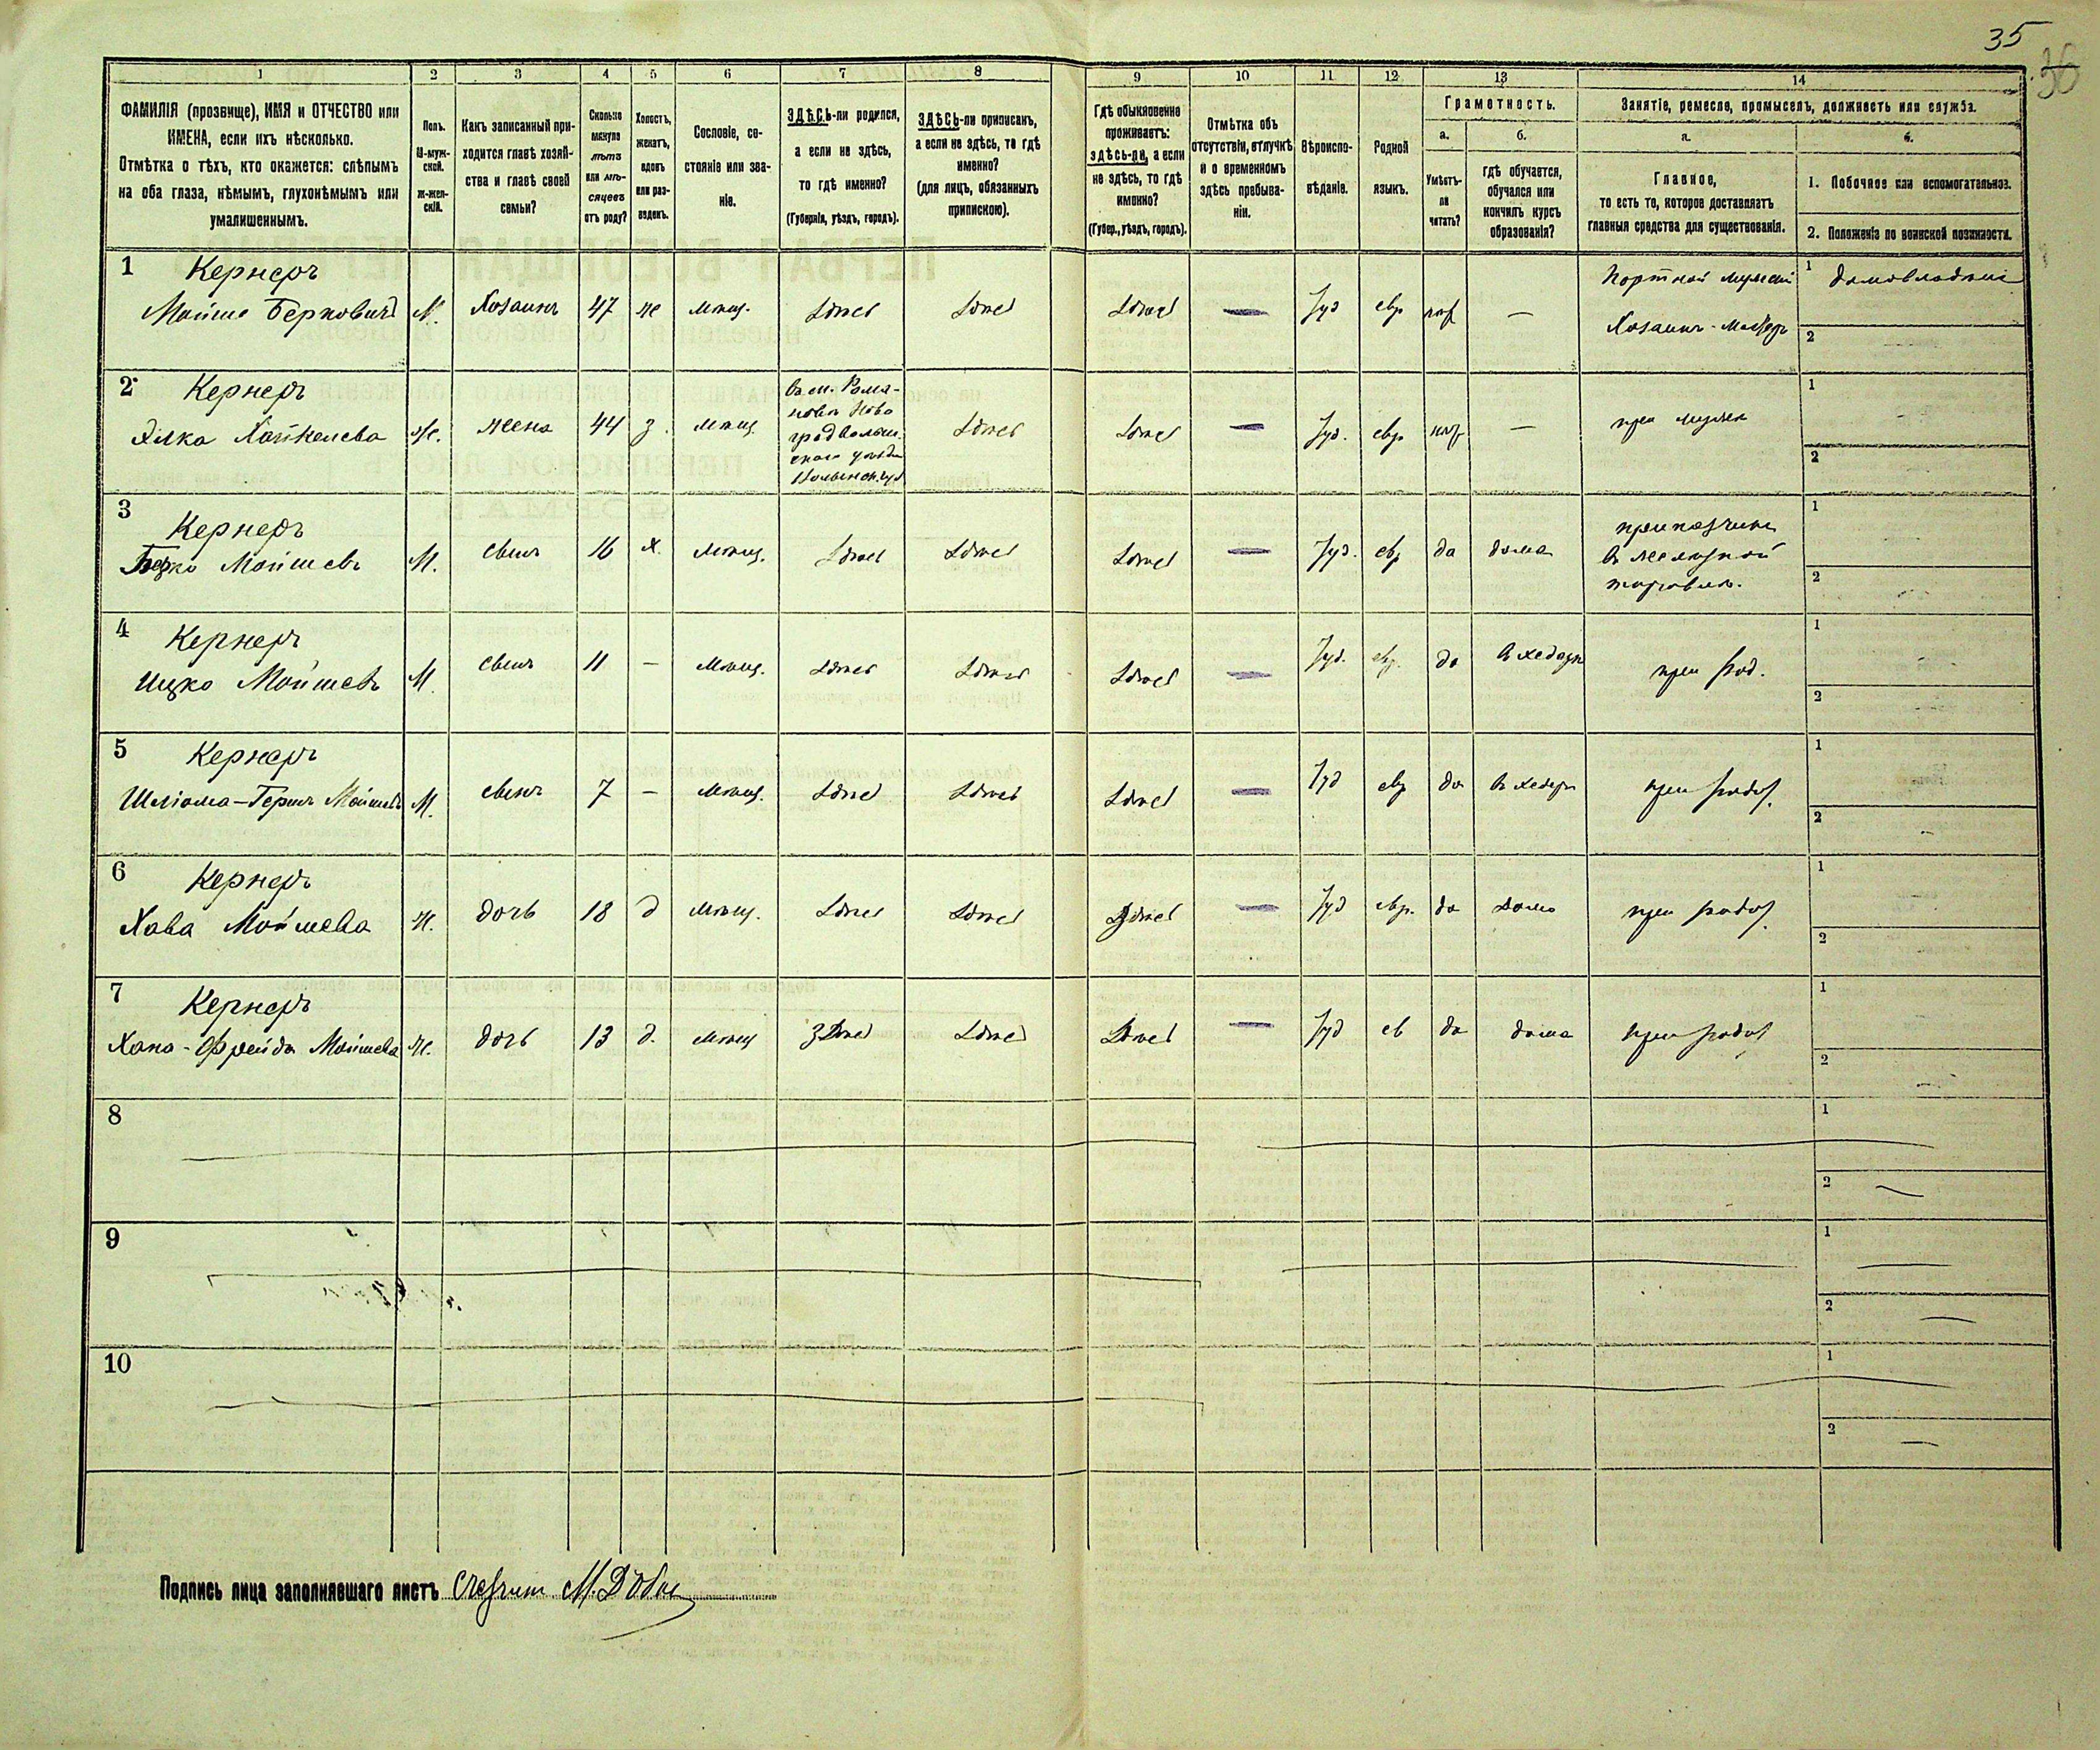 35
36
1 2 3 4 5 6 7 8 9 10 11 12 13 14
ФАМИЛІЯ (прозвище), ИМЯ и ОТЧЕСТВО или
ИМЕНА, если ихъ нѣсколько.
Отмѣтка о тѣхъ, кто окажется: слѣпымъ
на оба глаза, нѣмымъ, глухонѣмымъ или
умалишеннымъ.
Полъ.
М-муж-
ской.
Ж-жен-
скій.
Какъ записанный при-
ходится главѣ хозяй-
ства и главѣ своей
семьи?
Сколько
минуло
лѣтъ
или мѣ-
сяцевъ
отъ роду?
Холостъ,
женатъ,
вдовъ
или раз-
веденъ.
Сословіе, со-
стояніе или зва-
ніе.
ЗДѢСЬ-ли родился,
а если не здѣсь,
то гдѣ именно?
(Губернія, уѣздъ, городъ).
ЗДѢСЬ-ли приписанъ,
а если не здѣсь, то гдѣ
именно?
(для лицъ, обязанныхъ
припискою).
Гдѣ обыкновенно
проживаетъ:
здѣсь-ли, а если
не здѣсь, то гдѣ
именно?
(Губер., уѣздъ, городъ).
Отмѣтка объ
отсутствіи, отлучкѣ
и о временномъ
здѣсь пребыва-
ніи.
Вѣроиспо-
вѣданіе.
Родной
языкъ.
Грамотность.
а.
Умѣетъ-
ли
читать?
б.
гдѣ обучается,
обучался или
кончилъ курсъ
образованія?
Занятіе, ремесло, промыселъ, должность или служба.
а.
Главное,
то есть то, которое доставляетъ
главныя средства для существованія.
б.
1. Побочное или вспомогательное.
2. Положеніе по воинской повинности.
1 Кернеръ
Мойше Берковичъ М. Хозяинъ 47 же мѣщ. Здѣсь Здѣсь Здѣсь — Іуд евр нѣт —
Портной мужской
Хозяинъ-Мастеръ
1 домовладѣніе
2
2 Кернеръ
Элка Хацкелева Ж. жена 44 з. мѣщ.
въ м. Рома-
новкѣ Ново
градволын.
скаго уѣзда
Волынск. губ
Здѣсь Здѣсь — Іуд. евр нѣт — при мужѣ
1
2
3 Кернеръ
Берко Мойшевъ М. сынъ 16 х. мѣщ. Здѣсь Здѣсь Здѣсь — Іуд. евр да дома
приказчикъ
въ желѣзной
торговлѣ.
1
2
4 Кернеръ
Ицко Мойшевъ М. сынъ 11 — мѣщ. Здѣсь Здѣсь Здѣсь — Іуд. евр. да въ хедерѣ при род.
1
2
5 Кернеръ
Шліома-Гершъ Мойшевъ М. сынъ 7 — мѣщ. Здѣсь Здѣсь Здѣсь — Іуд евр да въ хедерѣ при родит.
1
2
6 Кернеръ
Хава Мойшева Ж. дочь 18 д мѣщ. Здѣсь Здѣсь Здѣсь — Іуд евр. да дома при родит.
1
2
7 Кернеръ
Хана-Фрейда Мойшева Ж. дочь 13 д. мѣщ Здѣсь Здѣсь Здѣсь — Іуд ев да дома при родит
1
2
8
1
2
9
1
2
10
1
2
Подпись лица заполнявшаго листъ